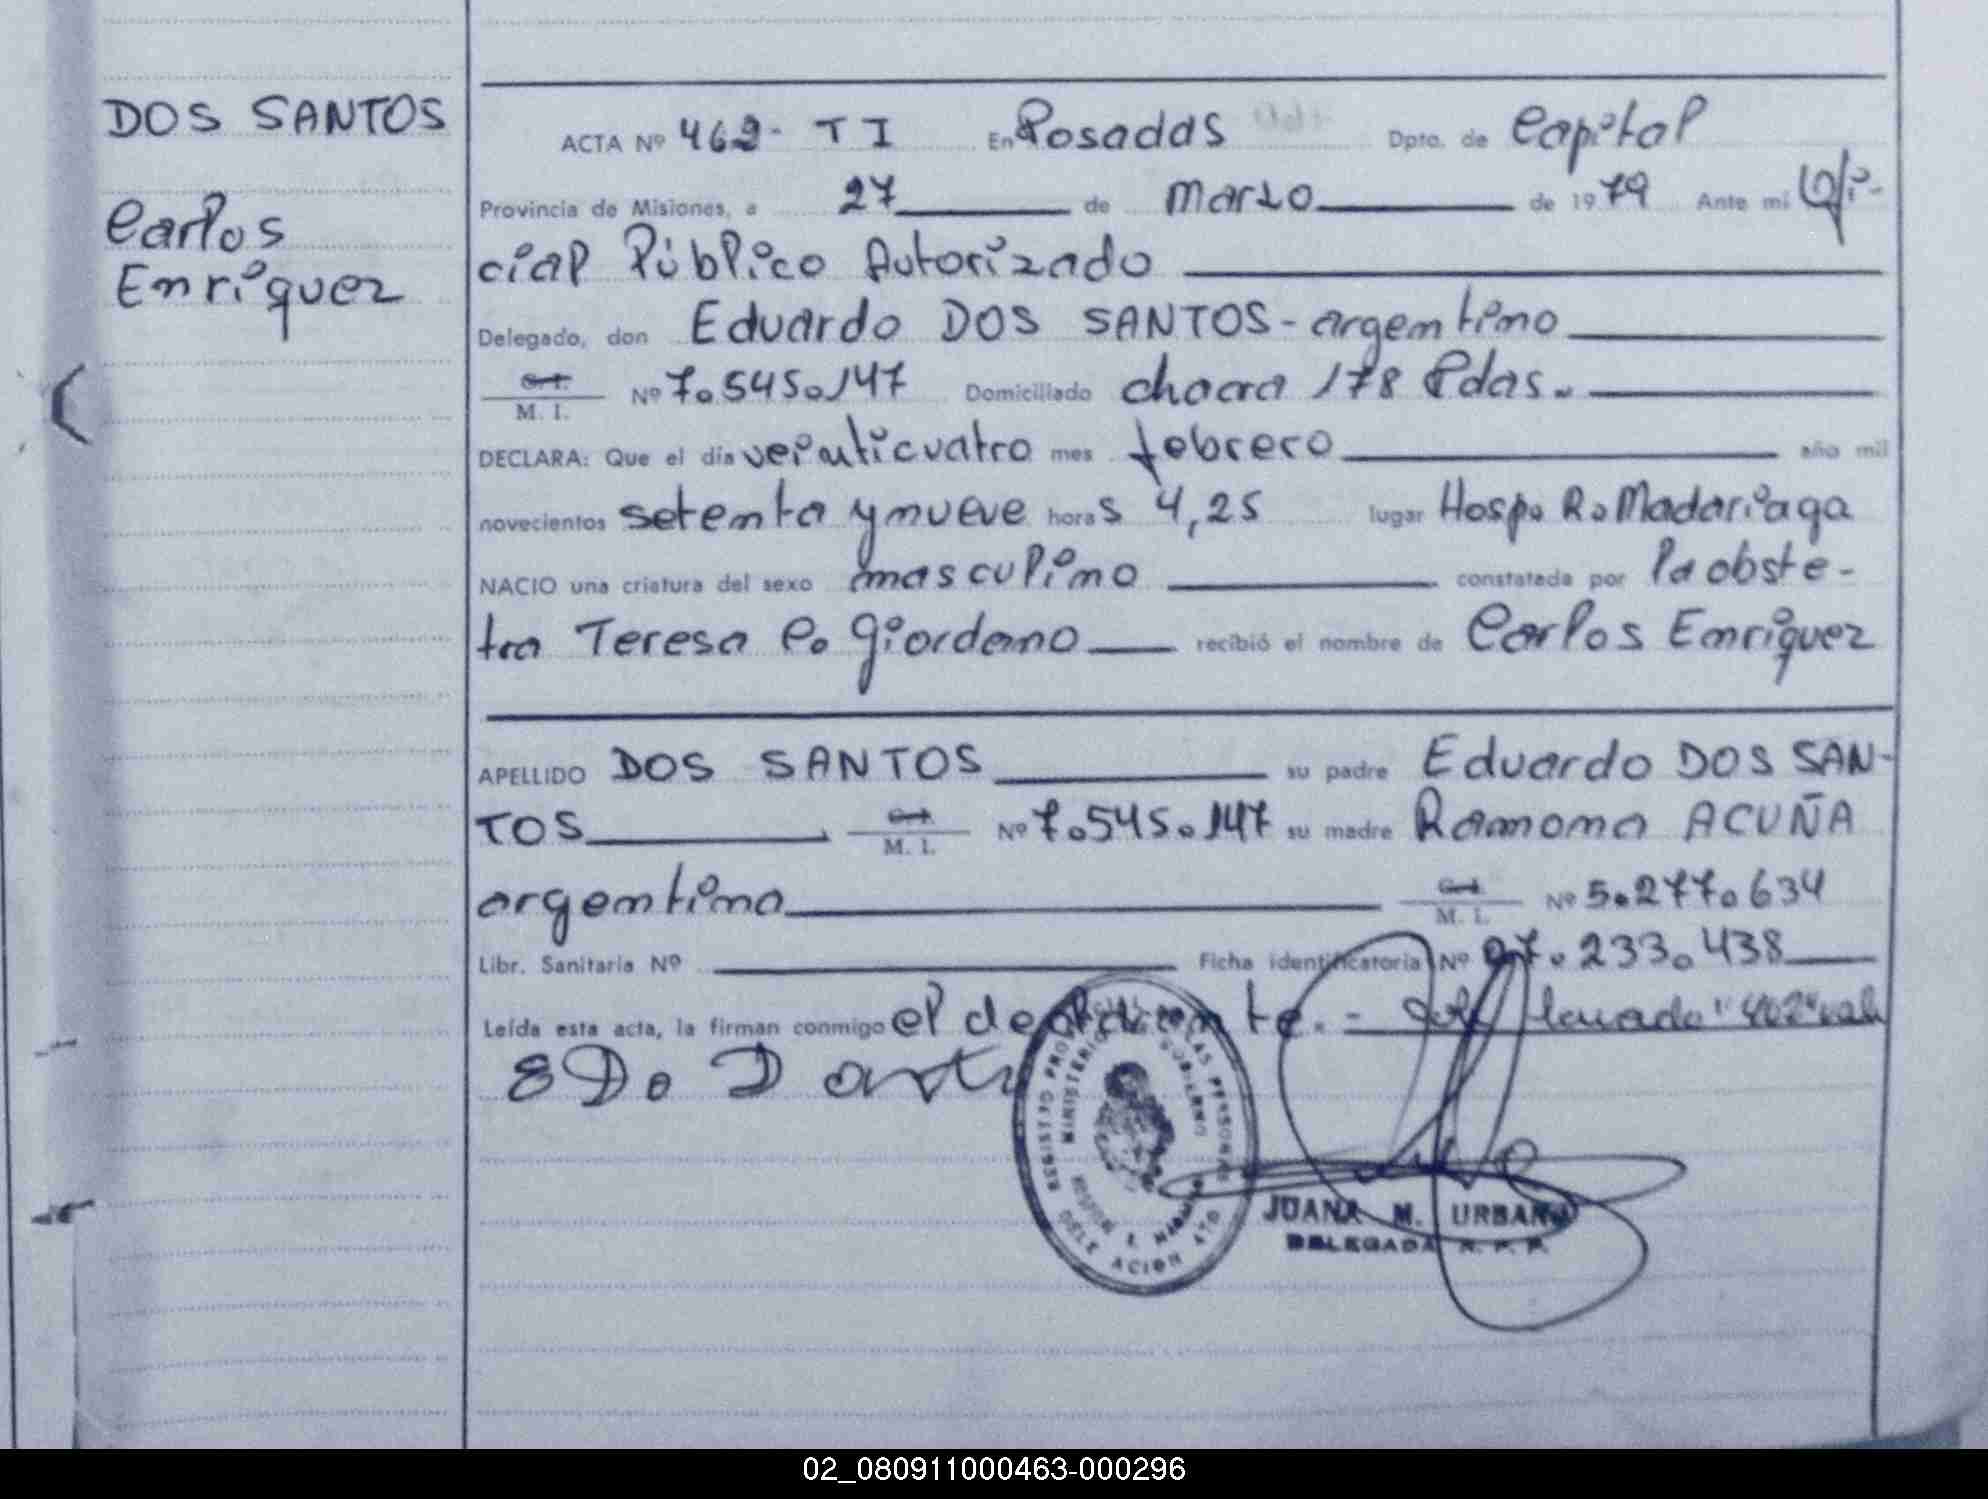 DOS SANTOS
Carlos
Enriquez
ACTA Nº 462- T I En Posadas Dpto. de Capital
Provincia de Misiones, a 27 de marzo de 1979 Ante mi Ofi-
cial Público Autorizado
Delegado, don Eduardo DOS SANTOS- argentino
C.I.
M. I. Nº 7.545.147 Domiciliado chacra 178 Pdas.
DECLARA: Que el día veinticuatro mes febrero año mil
novecientos setenta y nueve horas 4,25 lugar Hosp. R. Madariaga
NACIO una criatura del sexo masculino constatada por la obste-
tra Teresa C. Giordano recibió el nombre de Carlos Enriquez
APELLIDO DOS SANTOS su padre Eduardo DOS SAN-
TOS C.I.
M. I. Nº 7.545.147 su madre Ramona ACUÑA
argentina C.I.
M. I. Nº 5.277.634
Libr. Sanitaria Nº Ficha identificatoria Nº 27.233.438
Leída esta acta, la firman conmigo el declarante.- "462" vale
REGISTRO PROVINCIAL DE LAS PERSONAS
MINISTERIO DE GOBIERNO
JUANA M. URBANO
DELEGADA R. P. P.
02_080911000463-000296